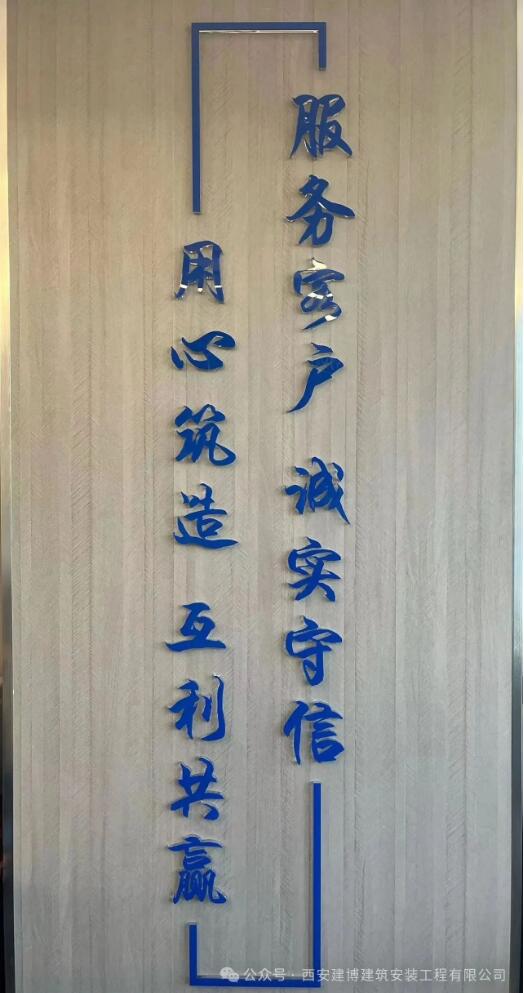 服务客户 诚实守信
用心筑造 互利共赢
公众号·西安建博建筑安装工程有限公司